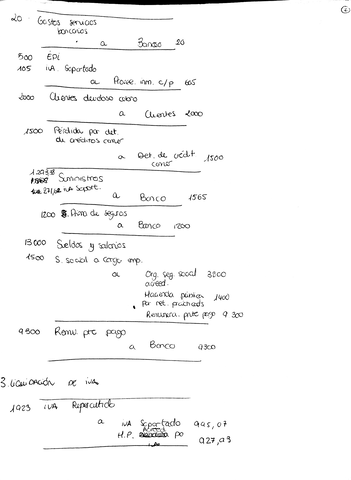 20 Gastos servicios
bancarios
a Banco 20
500 EPI
105 iVA Soportado
a Prove. inm. c/p 605
2000 Clientes dudoso cobro
a Clientes 2000
1500 Pérdida por det.
de créditos comer
a Det. de crédit 1500
comer
Suministros
271,62 iVA soport.
a Banco 1565
1200 Prima de seguros
a Banco 1200
13000 Sueldos y salarios
1500 S. social a cargo emp.
a Org. seg social 3800
acreed.
Hacienda pública 1400
por ret. practicads
Remunera. pnte pago 9300
9300 Remu. pte pago
a Banco 9300
3. LIQUIDACIÓN DE iVA
1923 iVA Repercutido
a iVA Soportado 995,07
H.P. Acreed po 927,93
iVA